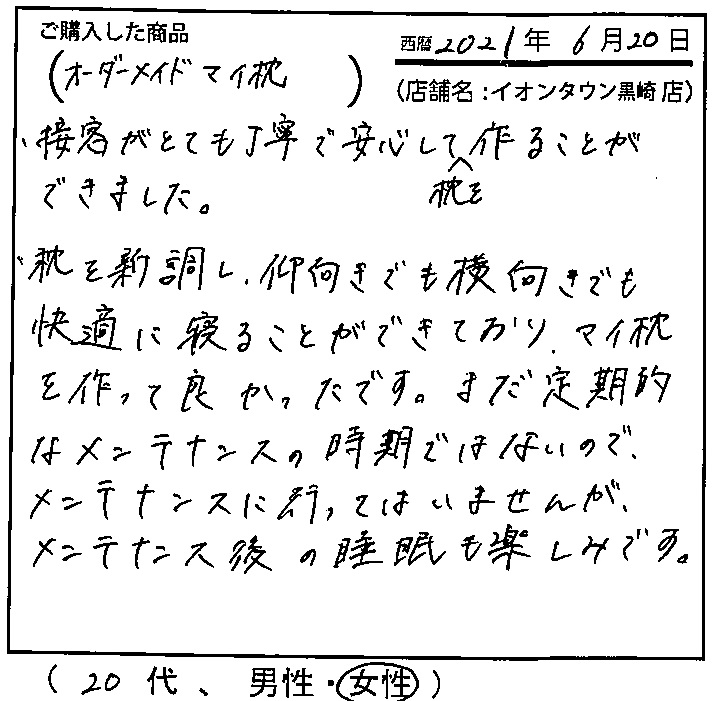 ご購入した商品
西暦2021年 6月20日
(オーダーメイドマイ枕)
(店舗名:イオンタウン黒崎店)
・接客がとても丁寧で安心して作ることが
枕を
できました。
・枕を新調し、仰向きでも横向きでも
快適に寝ることができており、マイ枕
を作って良かったです。まだ定期的
なメンテナンスの時期ではないので、
メンテナンスに行ってはいませんが、
メンテナンス後の睡眠も楽しみです。
(20代、男性・女性)